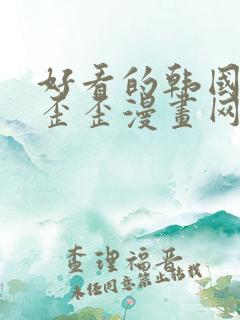 好看的韩國
歪歪漫畫网
查理福晋
未经同意禁止转载